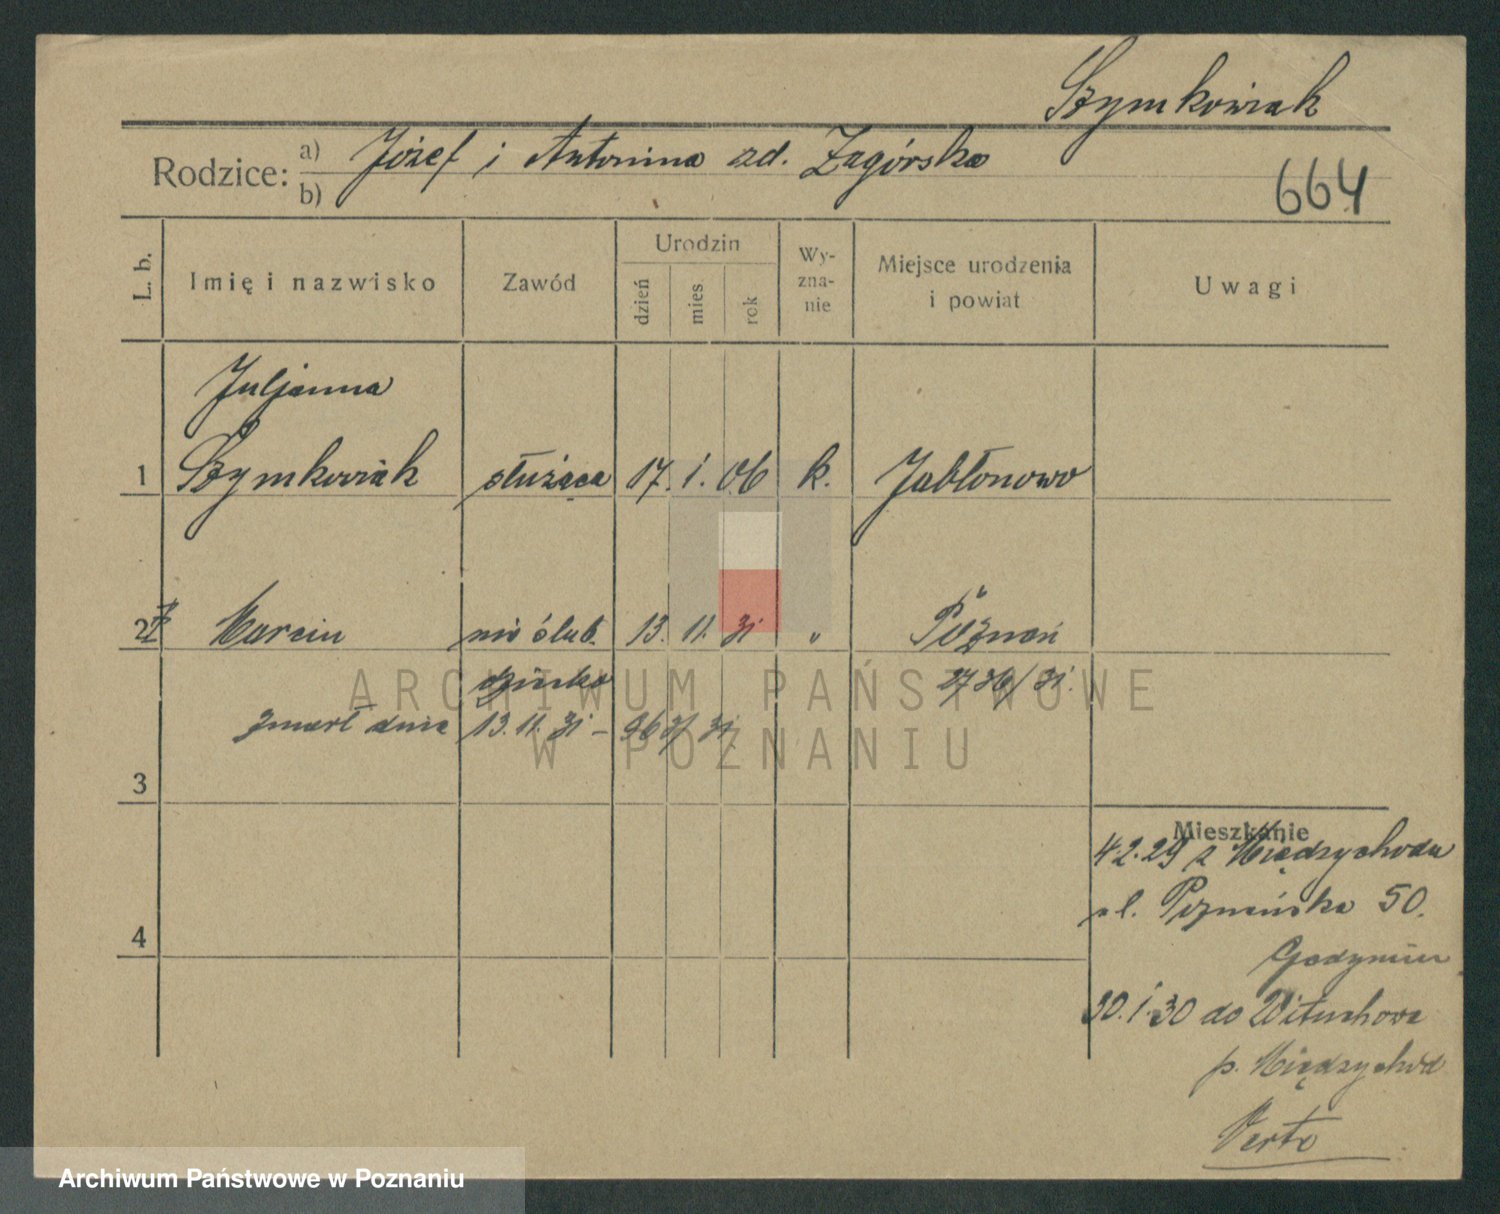 Szymkowiak
Rodzice: a) Józef i Antonina zd. Zagórska
b)
664
L. b.
Imię i nazwisko
Zawód
Urodzin
dzień
mies.
rok
Wy-
zna-
nie
Miejsce urodzenia
i powiat
Uwagi
Juljanna
1 Szymkowiak służąca 17. 1. 06 k. Jabłonowo
2 Marcin nie ślub. 13. 11. 31 " Poznań
dziecko
zmarł dnia 13.11.31 –
3
4
Mieszkanie
4.2.29 z Międzychodu
ul. Poznańska 50.
30.1.30 do Wituchowa
p. Międzychód
Verte
ARCHIWUM PAŃSTWOWE
W POZNANIU
Archiwum Państwowe w Poznaniu